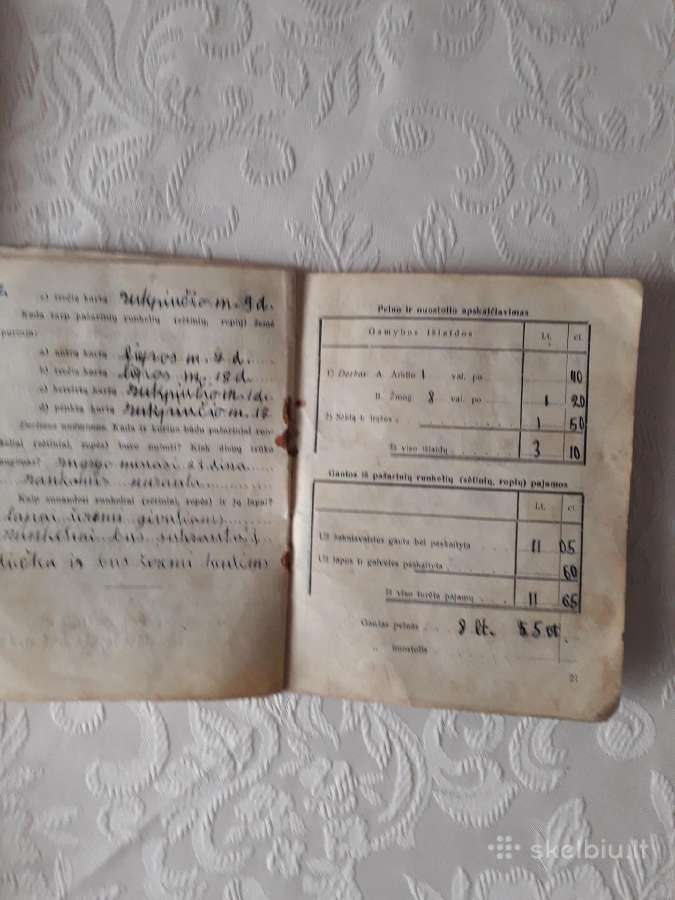 c) trečią kartą rugpiučio m. 9 d.
Kada tarp pašarinių runkelių (sėtinių, ropių) žemė
purinta:
a) antrą kartą liepos m. 2 d.
b) trečią kartą liepos m. 18 d.
c) ketvirtą kartą rugpiučio m. 1 d.
d) penktą kartą rugpiučio m. 18
Derliaus nuėmimas. Kada ir kuriuo būdu pašariniai run-
keliai (sėtiniai, ropės) buvo nuimti? Kiek dienų truko
rankomis nurauta
Kaip sunaudoti runkeliai (sėtiniai, ropės) ir jų lapai?
lapai
runkeliai bus
ir bus
Pelno ir nuostolio apskaičiavimas
Gamybos išlaidos Lt. ct.
1) Darbas: A. Arklio 1 val. po 40
B. Žmog. 8 val. po 1 20
2) Sėklą ir trąšos 1 50
Iš viso išlaidų 3 10
Gautos iš pašarinių runkelių (sėtinių, ropių) pajamos
Lt. ct.
Už šakniavaisius gauta bei paskaityta 11 05
Už lapus ir galveles paskaityta 60
Iš viso turėta pajamų 11 65
Gautas pelnas 8 lt. 55 ct.
„ nuostolis
21
skelbiu.lt